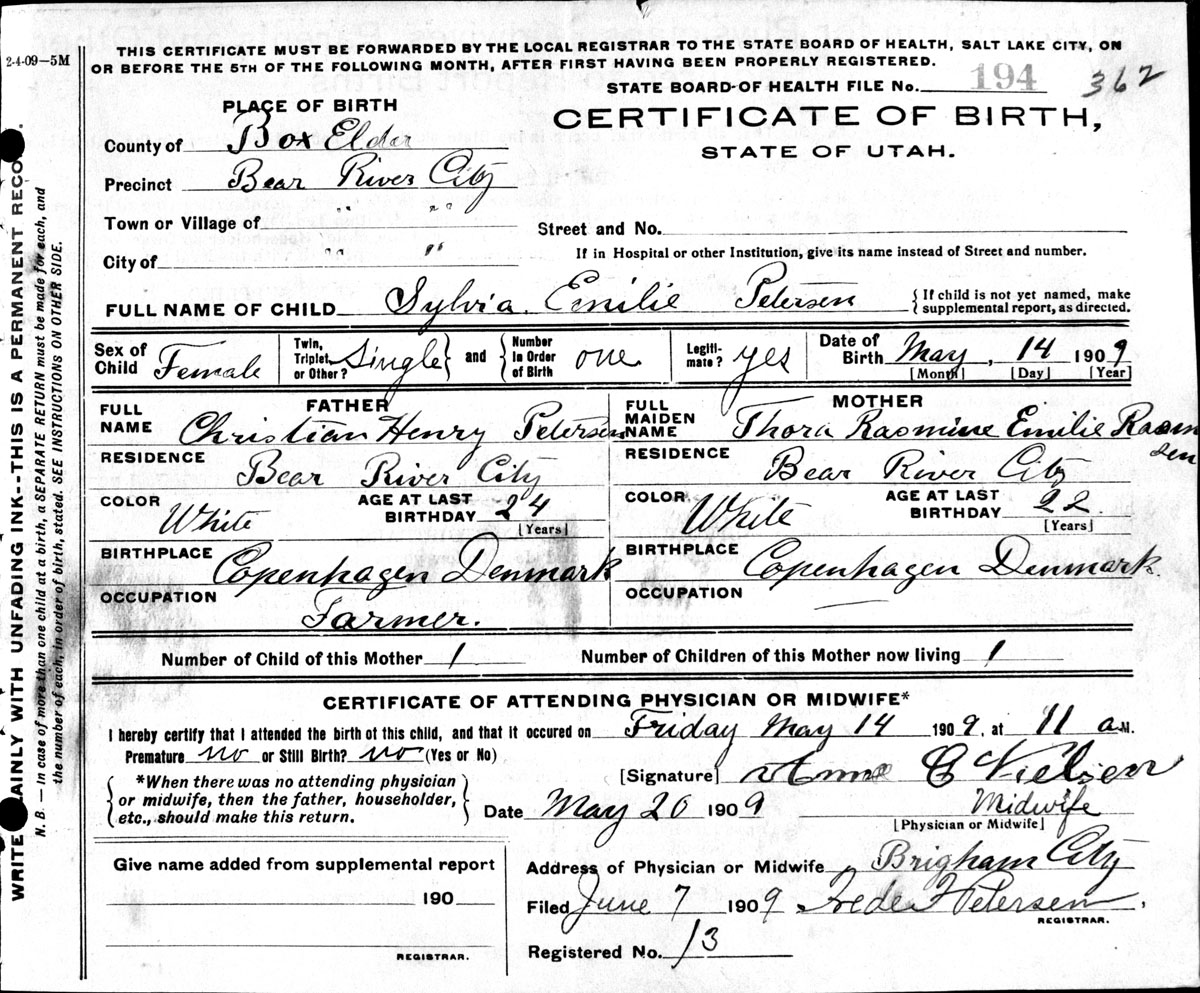 2-4-09—5M
THIS CERTIFICATE MUST BE FORWARDED BY THE LOCAL REGISTRAR TO THE STATE BOARD OF HEALTH, SALT LAKE CITY, ON
OR BEFORE THE 5TH OF THE FOLLOWING MONTH, AFTER FIRST HAVING BEEN PROPERLY REGISTERED.
STATE BOARD OF HEALTH FILE No. 194 362
PLACE OF BIRTH
CERTIFICATE OF BIRTH,
STATE OF UTAH.
County of Box Elder
Precinct Bear River City
Town or Village of " "
Street and No.
City of " "
If in Hospital or other Institution, give its name instead of Street and number.
FULL NAME OF CHILD Sylvia Emilie Petersen
{If child is not yet named, make
supplemental report, as directed.
Sex of Child Female
Twin, Triplet, or Other? Single} and {Number in Order of Birth one
Legiti-mate? yes
Date of Birth May, 14 1909
[Month] [Day] [Year]
FATHER
FULL NAME Christian Henry Petersen
RESIDENCE Bear River City
COLOR White
AGE AT LAST BIRTHDAY 24
[Years]
BIRTHPLACE Copenhagen Denmark
OCCUPATION Farmer.
MOTHER
FULL MAIDEN NAME Thora Rasmine Emilie Rasmu
sen
RESIDENCE Bear River City
COLOR White
AGE AT LAST BIRTHDAY 22.
[Years]
BIRTHPLACE Copenhagen Denmark
OCCUPATION —
Number of Child of this Mother 1 Number of Children of this Mother now living 1
CERTIFICATE OF ATTENDING PHYSICIAN OR MIDWIFE*
I hereby certify that I attended the birth of this child, and that it occured on Friday May 14 1909, at 11 a.M.
Premature no or Still Birth? no (Yes or No)
{*When there was no attending physician
or midwife, then the father, householder,
etc., should make this return.}
[Signature] Anne C Nielsen
Date May 20 1909 Midwife
[Physician or Midwife]
Give name added from supplemental report
190
REGISTRAR.
Address of Physician or Midwife Brigham City
Filed June 7 1909 Frede F Petersen,
REGISTRAR.
Registered No. 13
WRITE AINLY WITH UNFADING INK--THIS IS A PERMANENT RECO
N. B. — In case of more than one child at a birth, a SEPARATE RETURN must be made for each, and
the number of each, in order of birth, stated. SEE INSTRUCTIONS ON OTHER SIDE.